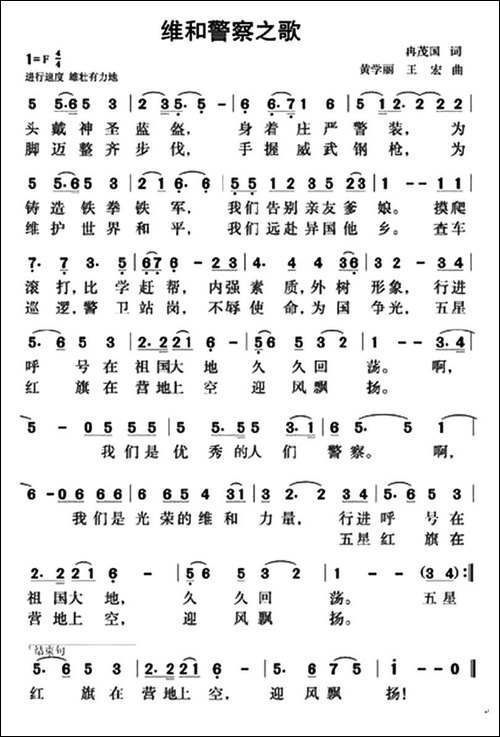 维和警察之歌
1=F 4/4
冉茂国 词
进行速度 雄壮有力地
黄学丽 王宏 曲
5 5·65 3 | 2 35· 5· | 6 6·71 6 | 5 5 3 - 5 |
头戴神圣蓝盔，身着庄严警装，为
脚迈整齐步伐，手握威武钢枪，为
5 5·65 3 | 21 6·6· | 55 1235 23 | 1 -- 11 |
铸造铁拳铁军，我们告别亲友爹娘。摸爬
维护世界和平，我们远赴异国他乡。查车
7· 7 3· 5 | 676 - 1 | 3· 4 4· 3 | 2 3 2 - 34 |
滚打，比学赶帮，内强素质，外树形象，行进
巡逻，警卫站岗，不辱使命，为国争光，五星
5· 65 3 | 2·221 6 | 5 6 5 3 2 | 1 -- 3·4 |
呼号在祖国大地久久回荡。啊，
红旗在营地上空迎风飘扬。
5 - 05 55 | 5· 55 3·1 | 65· 5 | 5 1 |
我们是优秀的人们警察。啊，
6 -06 66 | 665 4 31 | 3 2· 2 34 | 5· 65 3 |
我们是光荣的维和力量，行进呼号在
五星红旗在
2·221 6 - | 56 5 32 | 1 - | 1 - (34) :||
祖国大地，久久回荡。五星
营地上空，迎风飘扬。
结束句
5· 65 3 | 2·221 6 | 5 6 5·5 | 1 -- | 100 ||
红旗在营地上空，迎风飘扬！